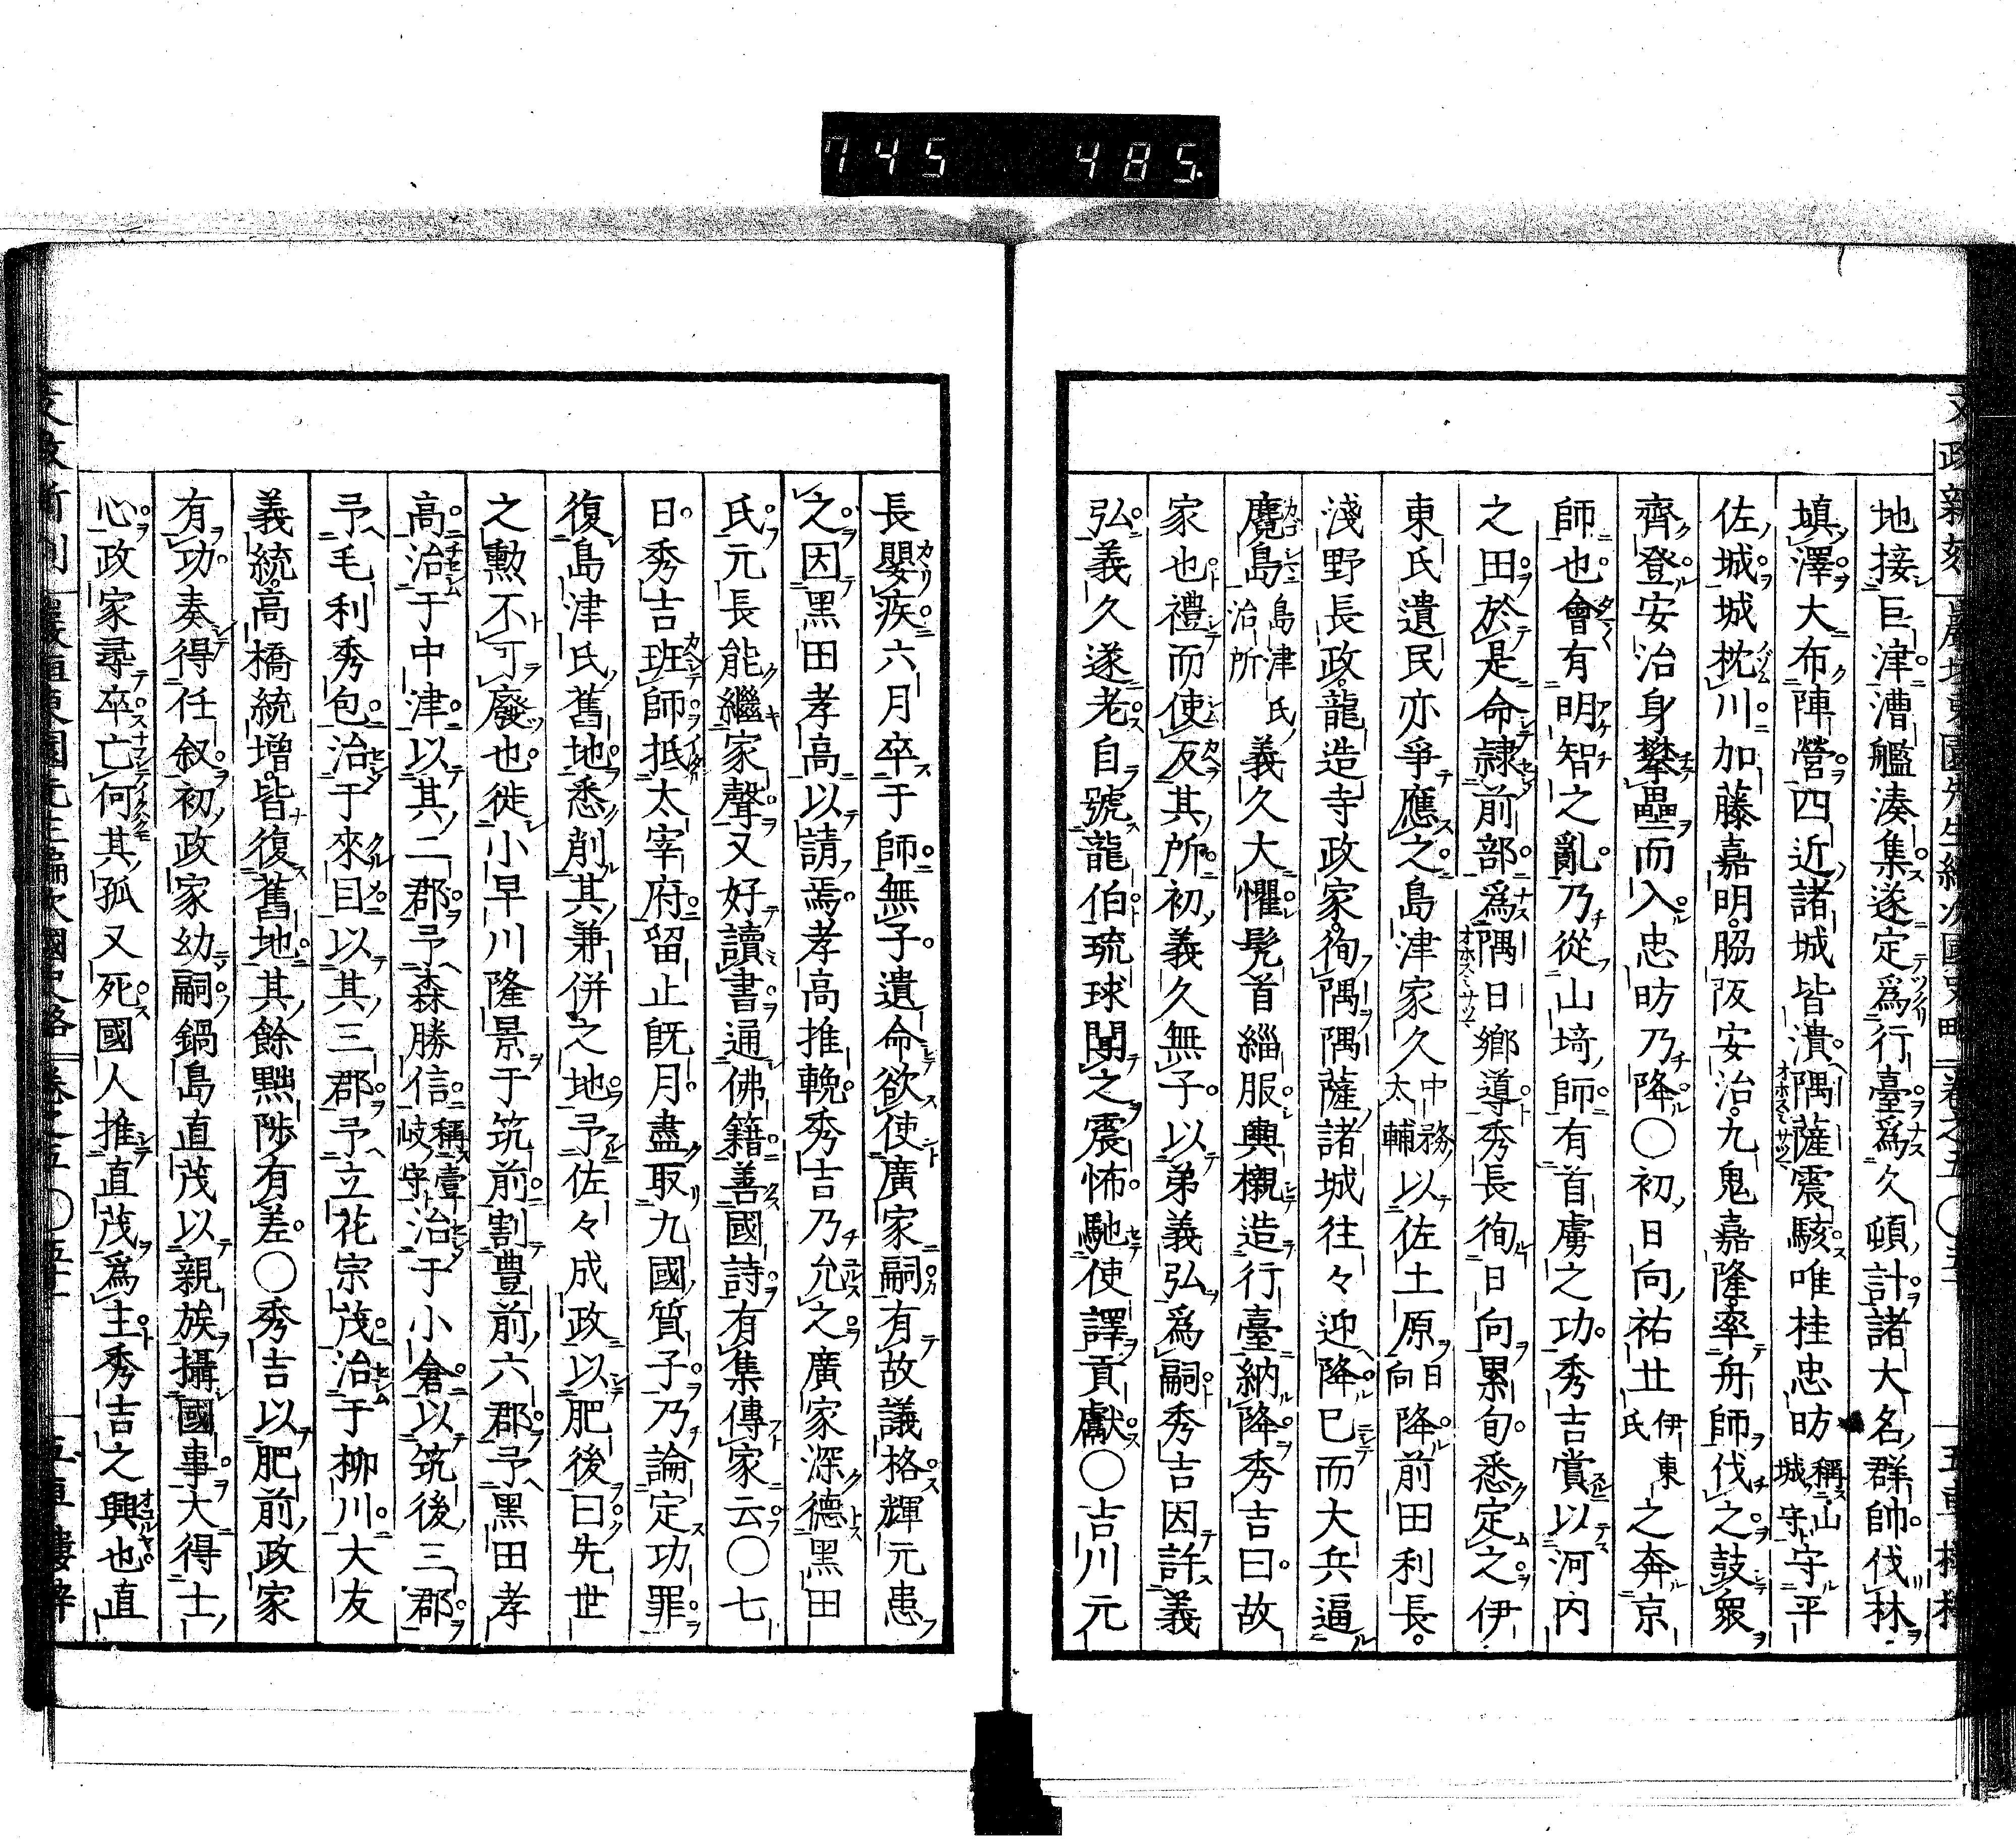 745 485.
地接巨津漕艦湊集遂定爲行臺爲久頓計諸大名群帥伐林
塡澤大布陣營四近諸城皆潰隅薩震駭唯桂忠昉稱山城守守平
佐城城枕川加藤嘉明脇阪安治九鬼嘉隆率舟師伐之鼓衆
齊登安治身攀壘而入忠昉乃降〇初日向祐丗伊東氏之奔京
師也會有明智之亂乃從山埼師有首虜之功秀吉賞以河内
之田於是命隷前部爲隅日鄉導秀長徇日向累旬悉定之伊
東氏遺民亦爭應之島津家久中務太輔以佐土原日向降前田利長
淺野長政龍造寺政家徇隅隅薩諸城往々迎降已而大兵逼
麑島島津氏治所義久大懼髡首緇服輿櫬造行臺納降秀吉曰故
家也禮而使反其所初義久無子以弟義弘爲嗣秀吉因許義
弘義久遂老自號龍伯琉球聞之震怖馳使譯貢獻〇吉川元
長嬰疾六月卒于師無子遺命欲使廣家嗣有故議格輝元患
之因黑田孝高以請焉孝高推輓秀吉乃允之廣家深德黑田
氏元長能繼家聲又好讀書通佛籍善國詩有集傳家云〇七
日秀吉班師抵太宰府留止旣月盡取九國質子乃論定功罪
復島津氏舊地悉削其兼併之地予佐々成政以肥後曰先世
之勲不可廢也徙小早川隆景于筑前割豊前六郡予黑田孝
高治于中津以其二郡予森勝信稱壹岐守治于小倉以筑後三郡
予毛利秀包治于來目以其三郡予立花宗茂治于柳川大友
義統高橋統增皆復舊地其餘黜陟有差〇秀吉以肥前政家
有功奏得任叙初政家幼嗣鍋島直茂以親族攝國事大得士
心政家尋卒亡何其孤又死國人推直茂爲主秀吉之興也直